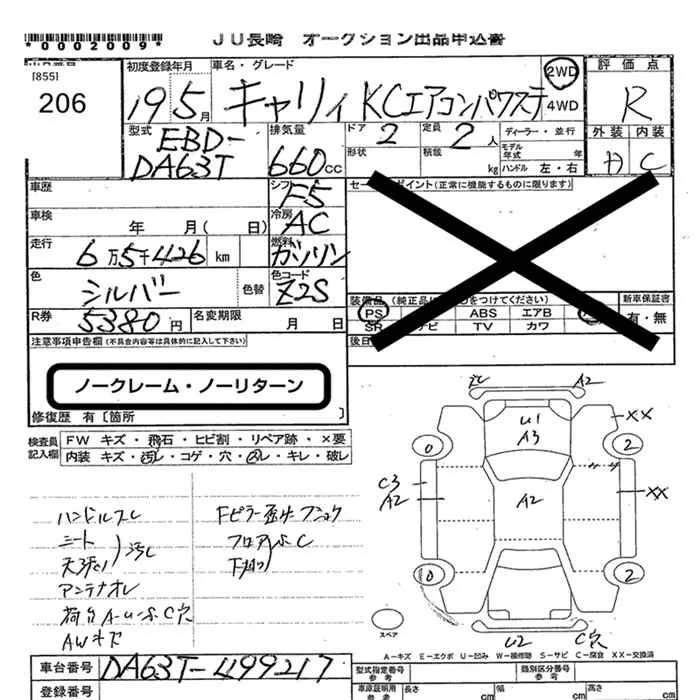 *0002009*
JU長崎 オークション出品申込書
[855]
206
初度登録年月
19 5月
車名・グレード
キャリィ KCエアコンパワステ
2WD
4WD
評価点
R
外装 内装
C
型式
EBD-
DA63T
排気量
660cc
ドア 2
形状
定員 2人
積載 kg
ディーラー・並行
モデル年式 年
ハンドル 左・右
車歴
シフト F5
セールスポイント(正常に機能するものに限ります)
車検
年 月( 日)
冷房 AC
走行
6万5千426 km
燃料 ガソリン
色
シルバー
色替
色コード
Z2S
装備品(純正品に○をつけてください)
PS
ABS エアB
SR ナビ TV カワ
新車保証書
有・無
R券
5380円
名変期限
月 日
後日
注意事項申告欄(不具合内容等は具体的に記入して下さい)
ノークレーム・ノーリターン
修復歴 有〔箇所 〕
検査員記入欄
FW キズ・飛石・ヒビ割・リペア跡・×要
内装 キズ・汚れ・コゲ・穴・スレ・キレ・破レ
ハンドルスレ
シート
天張り
汚し
アンテナオレ
荷台 A-u-S C穴
Fピラー歪
フロア S C
下廻り
U2
A2
U1
A3
XX
0
2
C3
A2
A2
XX
0
2
スペア
U2
C穴
A-キズ E-エクボ U-凹み W-補修跡 S-サビ C-腐食 XX-交換済
車台番号
DA63T-499217
登録番号
型式指定番号
参考
類別区分番号
参考
車庫証明用
参考
長さ cm
幅 cm
高さ cm